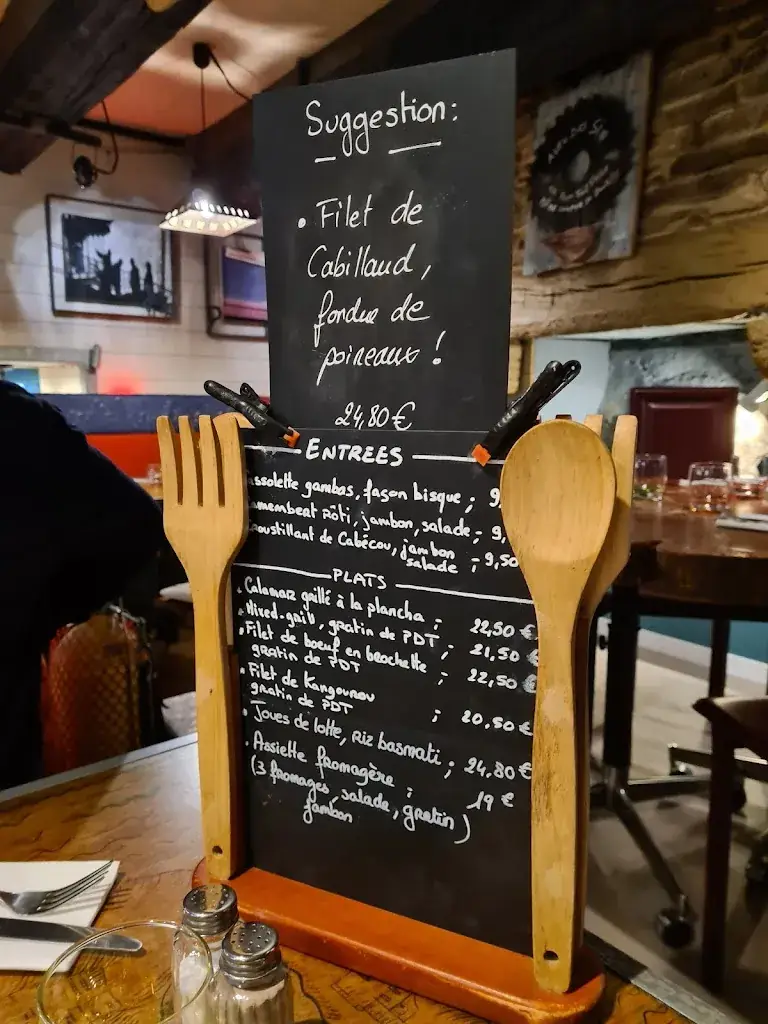 Suggestion:
• Filet de
Cabillaud,
fondue de
poireaux !
24,80€
ENTREES
ssolette gambas, façon bisque ; 9,
amembeat rôti, jambon, salade ; 9,
oustillant de Cabécou, jambon
salade ; 9,50
PLATS
• Calamar grillé à la plancha ; 22,50 €
• Mixed-grill, gratin de PDT ; 21,50 €
• Filet de boeuf en brochette ; 22,50 €
gratin de PDT
• Filet de Kangourou
gratin de PDT ; 20,50 €
• Joues de lotte, riz basmati ; 24,80 €
• Assiette fromagère ; 19 €
(3 fromages, salade, gratin)
jambon